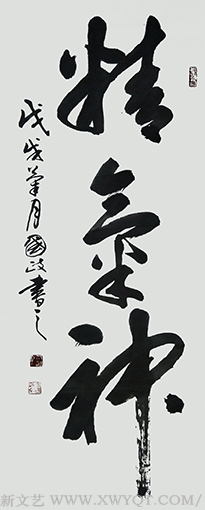 精氣神
戊戌荷月國政書之
新文艺 WWW.XWYQT.COM/